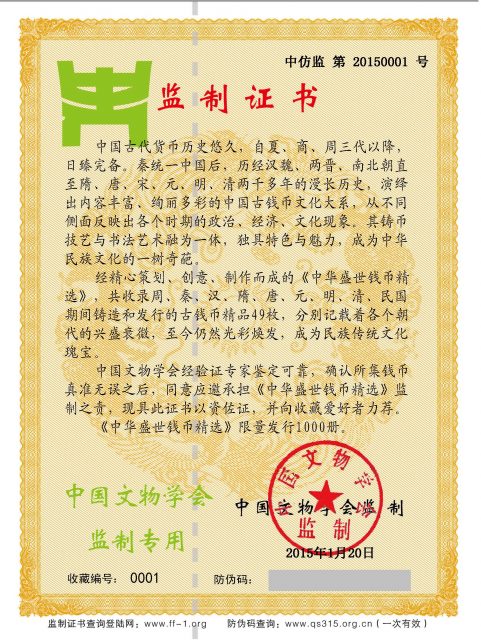 中仿监 第 20150001 号
监制证书
中国古代货币历史悠久，自夏、商、周三代以降，
日臻完备。秦统一中国后，历经汉魏、两晋、南北朝直
至隋、唐、宋、元、明、清两千多年的漫长历史，演绎
出内容丰富、绚丽多彩的中国古钱币文化大系，从不同
侧面反映出各个时期的政治、经济、文化现象。其铸币
技艺与书法艺术融为一体，独具特色与魅力，成为中华
民族文化的一树奇葩。
经精心策划、创意、制作而成的《中华盛世钱币精
选》，共收录周、秦、汉、隋、唐、元、明、清、民国
期间铸造和发行的古钱币精品49枚，分别记载着各个朝
代的兴盛衰微，至今仍然光彩焕发，成为民族传统文化
瑰宝。
中国文物学会经验证专家鉴定可靠，确认所集钱币
真准无误之后，同意应邀承担《中华盛世钱币精选》监
制之责，现具此证书以资佐证，并向收藏爱好者力荐。
《中华盛世钱币精选》限量发行1000册。
中国文物学会
监制专用
中国文物学会
监制
中国文物学会监制
2015年1月20日
收藏编号： 0001
防伪码：
监制证书查询登陆网：www.ff-1.org 防伪码查询：www.qs315.org.cn（一次有效）